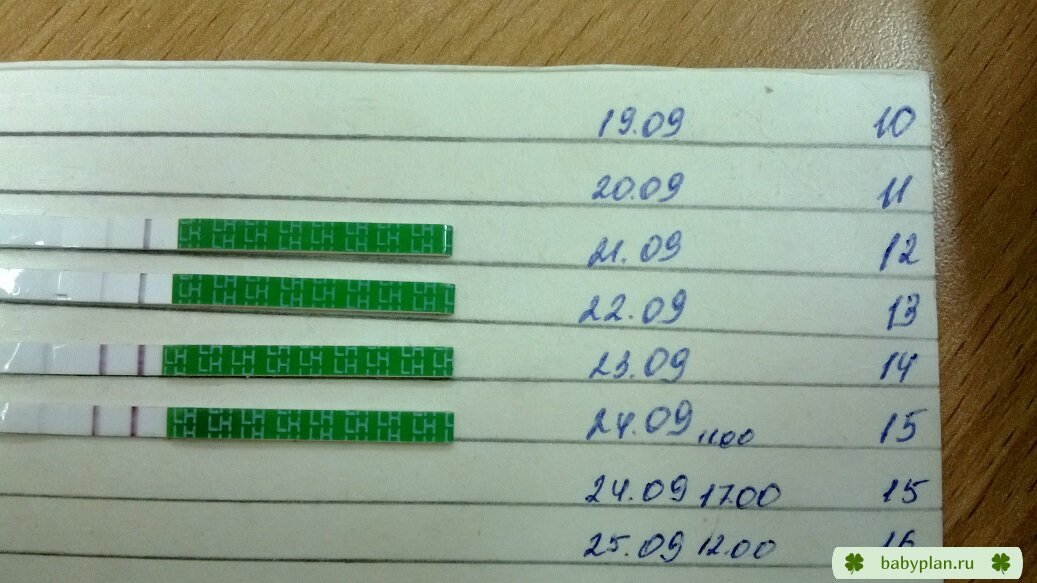 19.09 10
20.09 11
LH LH LH LH LH LH LH LH 21.09 12
LH LH LH LH LH LH LH LH 22.09 13
LH LH LH LH LH LH LH LH 23.09 14
LH LH LH LH LH LH LH LH 24.09 11 00 15
24.09 17.00 15
25.09 12.00 16
babyplan.ru